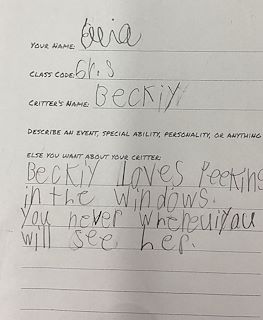 Your Name:
Class Code: Gr.S
Critter's Name: Beckiy
Describe an event, special ability, personality, or anything
else you want about your critter:
Beckiy loves Peeking
in the windows.
You never whereuiyou
will see her.